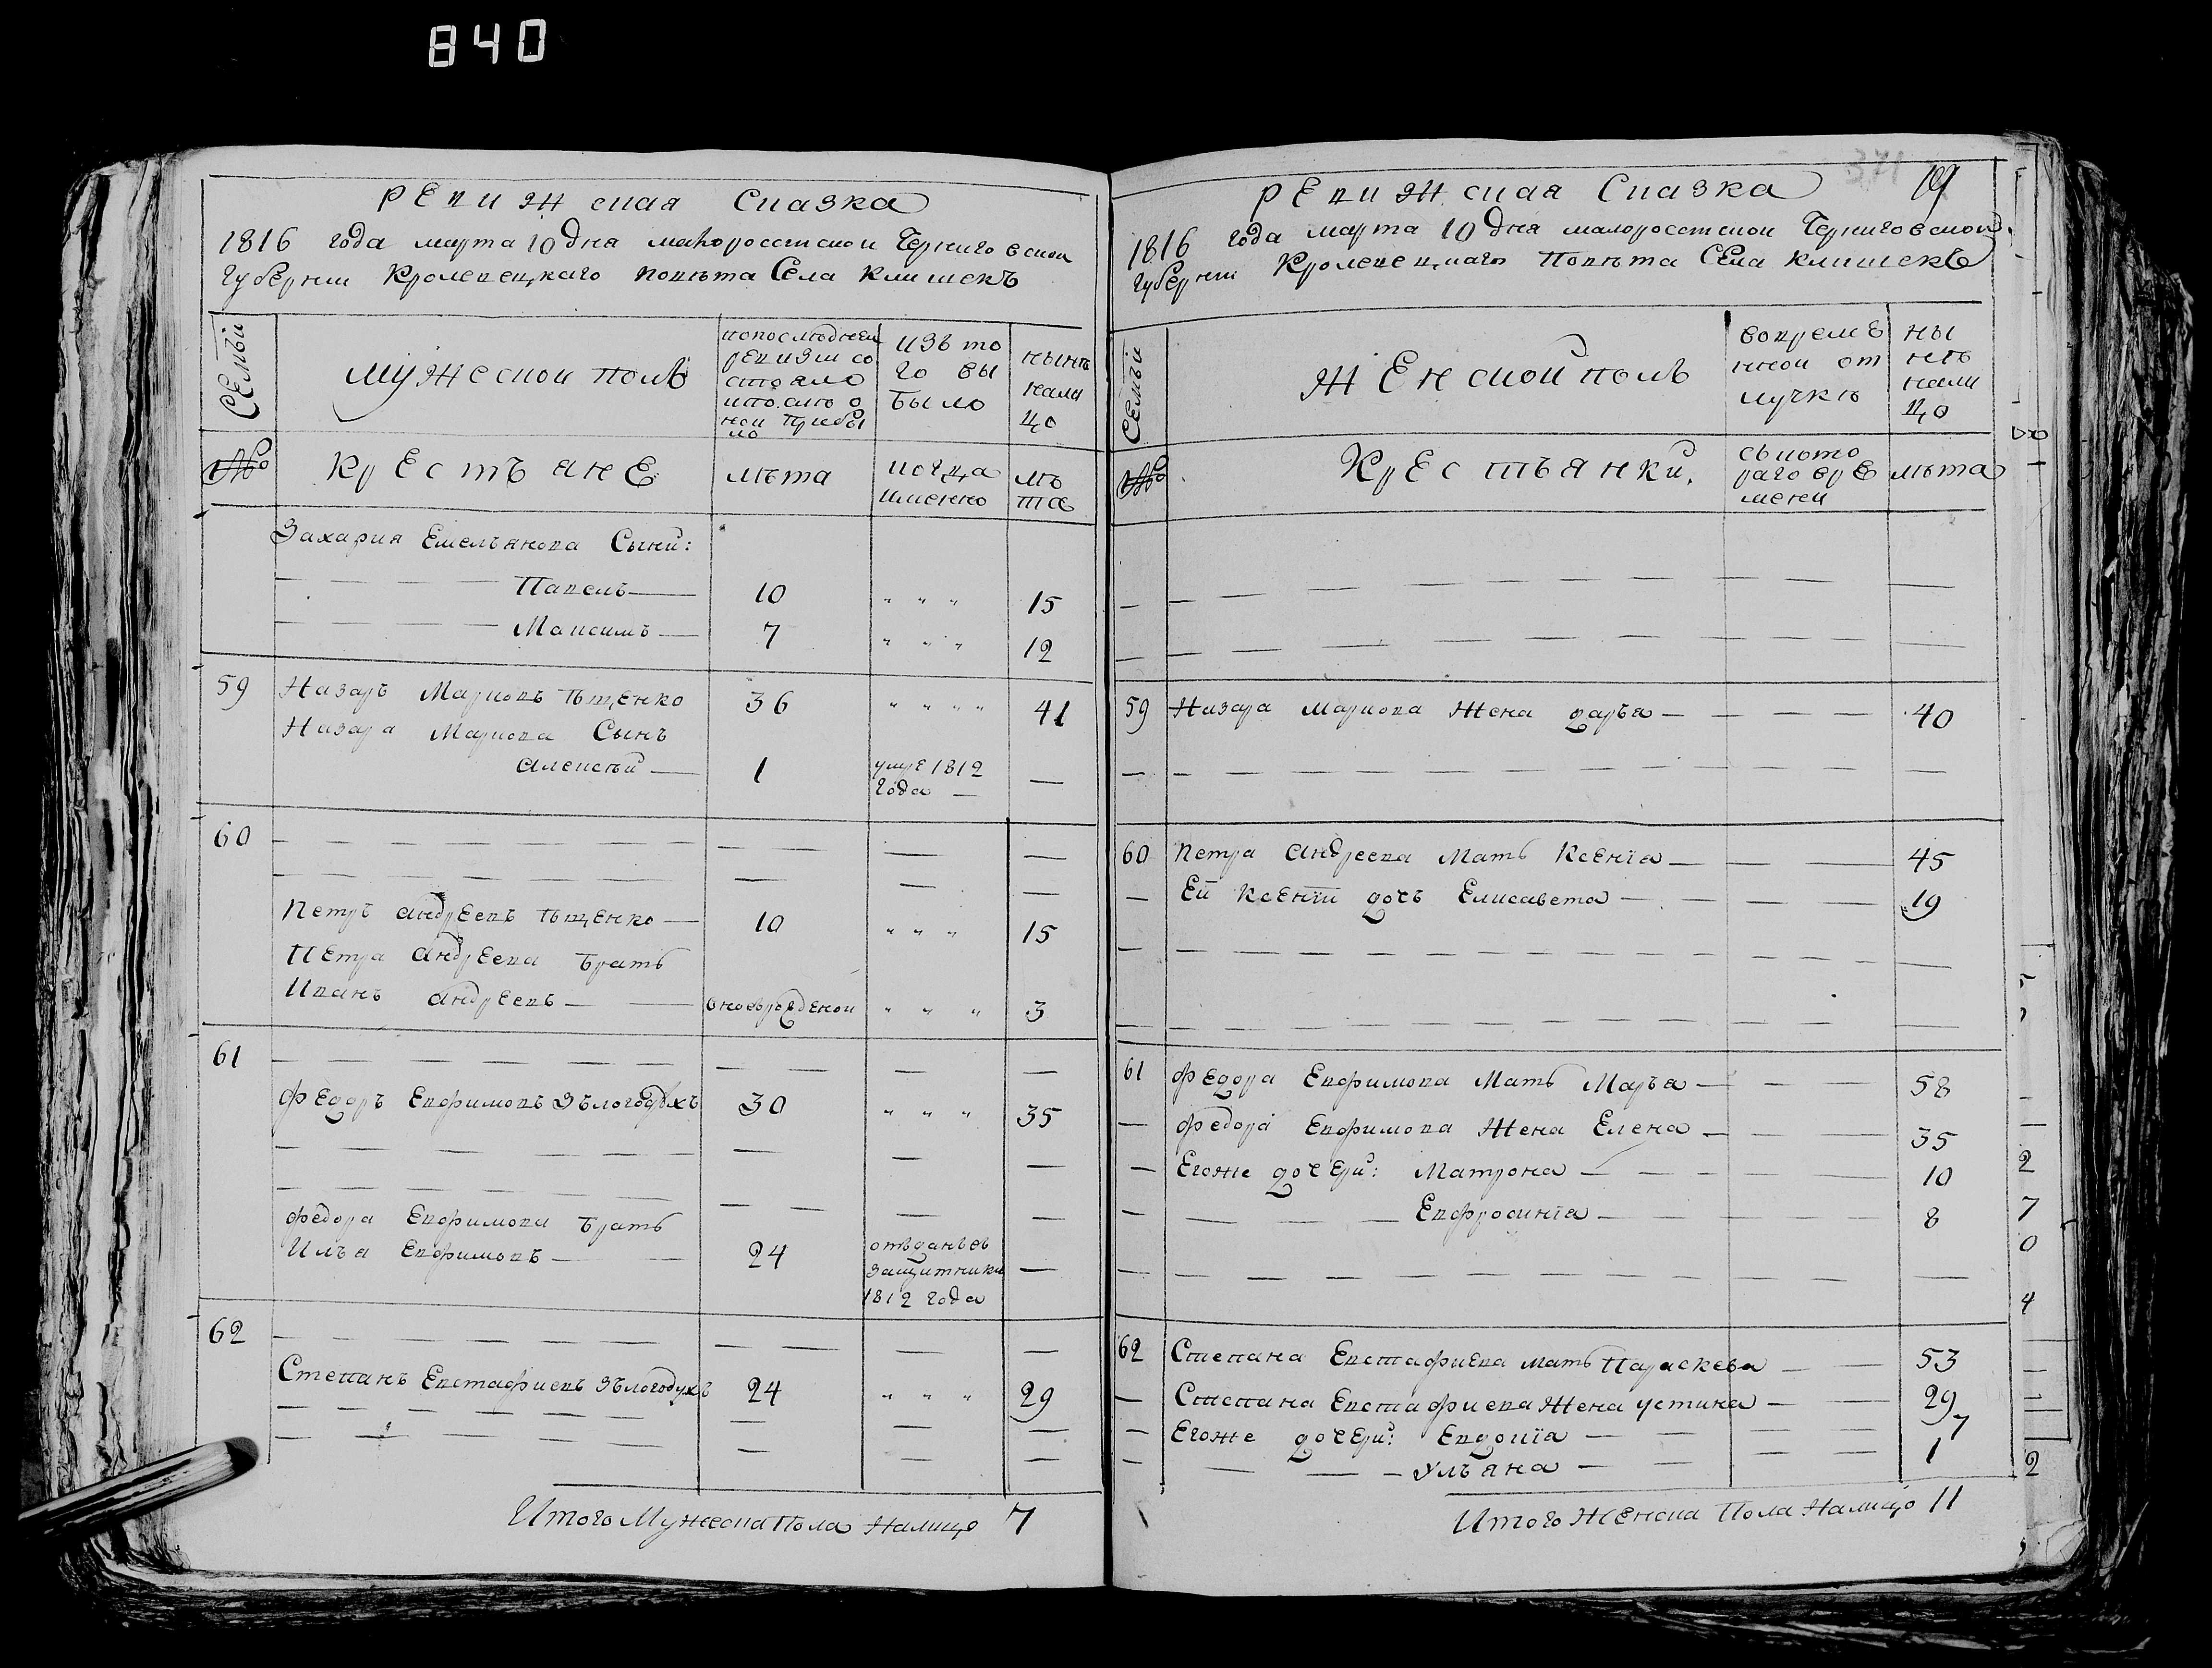 840
Ревижская Сказка
1816 года марта 10 дня малоросстскои Черниговскои
Губернии Кролевецкаго повѣта Села Клишекъ
Семьи
мужескои полъ
попослѣднеи ревизии состояло ипослѣ оной прибыло
изъ того выбыло
нынѣ налицо
№
Крестъяне
лѣта
когда именно
лѣта
Захария Емелъянова Сыни:
Павелъ 10 " " " 15
Максимъ 7 " " " 12
59 Назаръ Марковъ Тыщенко 36 " " " " 41
Назара Маркова Сынъ
Алексѣй 1 умре 1812 года
60
Петръ Андреевъ Тыщенко 10 " " " 15
Петра Андреева Братъ
Иванъ Андреевъ вновърожденои " " " 3
61
Федоръ Евфимовъ Зълогодухъ 30 " " " 35
Федора Евфимова Братъ
Илъя Евфимовъ 24 отъданъвъ защитники 1812 года
62
Степанъ Евстафиевъ Зълогодухъ 24 " " " 29
Итого Мужеска Пола Налицо 7
371 19
Ревижская Сказка
1816 года марта 10 дня малоросстскои Черниговскои
Губернии Кролевецкаго Повѣта Села Клишекъ
Семьи
Женскои полъ
вовремѣннои отлучкѣ
нынѣ налицо
№
Крестьянки.
съкотораго времени
лѣта
59 Назара Маркова Жена Даръя 40
60 Петра Андреева Мать Ксенїя 45
Ей Ксенїи дочъ Елисавета 19
61 Федора Евфимова Мать Маръя 58
Федора Евфимова Жена Елена 35
Егоже дочери: Матрона 10
Евфросинїя 8
62 Степана Евстафиева мать Параскева 53
Степана Евстафиева Жена устина 29
Егоже дочери: Евдокїя 7
Улъяна 1
Итого Женска Пола Налицо 11